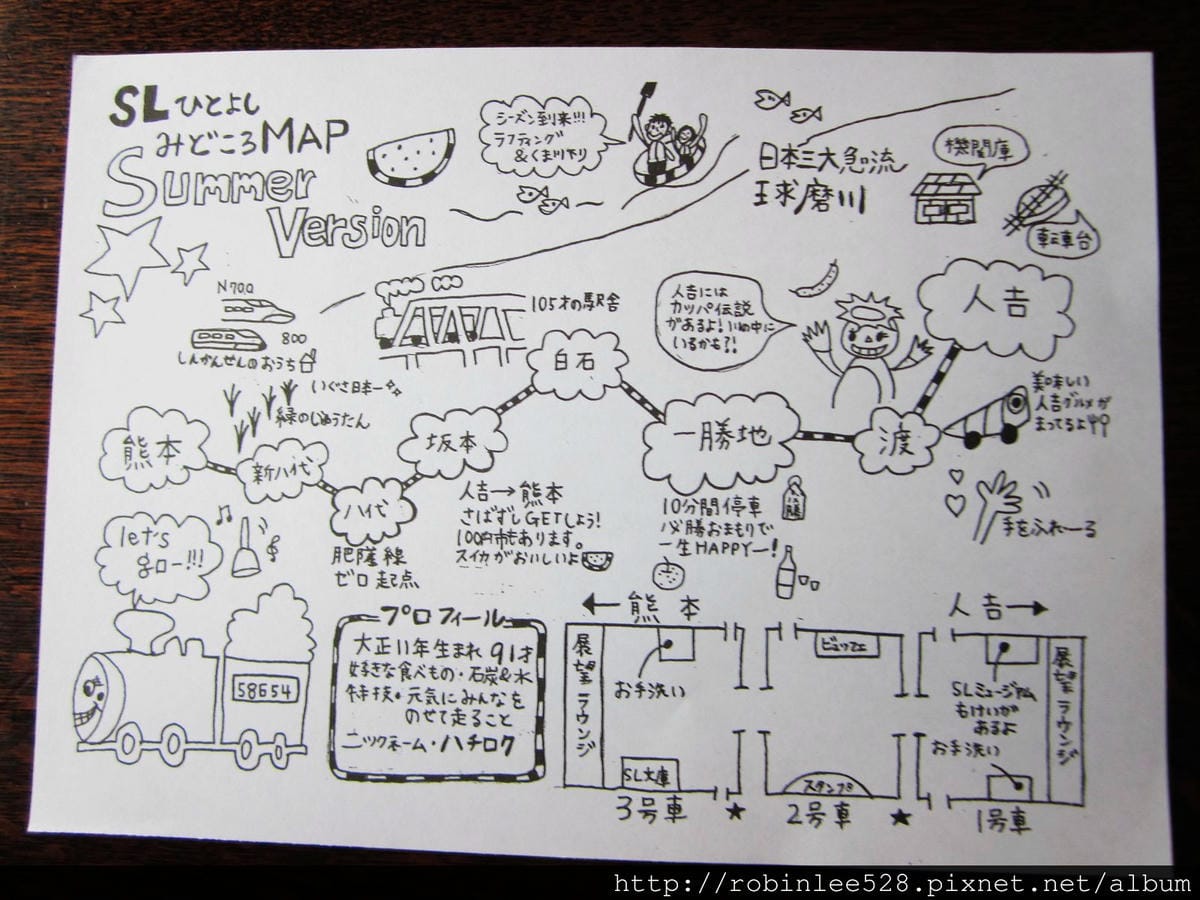 SLひとよし
みどころMAP
Summer
Version
シーズン到来!!!
ラフティング
&くま川下り
日本三大急流
球磨川
機関庫
転車台
N700
800
しんかんせんのおうち
105才の駅舎
人吉には
カッパ伝説
があるよ!
いるかも?!
人吉
いぐさ日本一
緑のじゅうたん
白石
美味しい
人吉グルメが
まってるよ
熊本
新八代
坂本
一勝地
渡
八代
肥薩線
ゼロ起点
人吉→熊本
さばずしGETしよう!
100円市もあります。
スイカがおいしいよ
10分間停車
必勝おまもりで
一生HAPPYー!
手をふれーる
let's
gロー!!!
58654
プロフィール
大正11年生まれ 91才
好きな食べもの・石炭&水
特技・元気にみんなを
のせて走ること
ニックネーム・ハチロク
←熊本
人吉→
展望ラウンジ
お手洗い
SL文庫
3号車
★
ビュッフェ
スタンプ
2号車
★
SLミュージアム
もけいが
あるよ
お手洗い
1号車
展望ラウンジ
http://robinlee528.pixnet.net/album